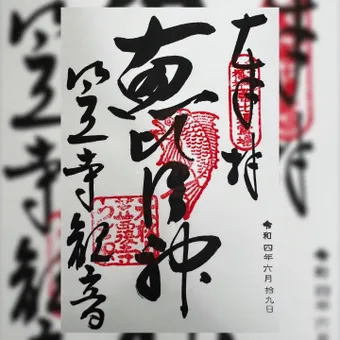 奉拝
令和四年六月拾九日
恵比須神
笠寺観音